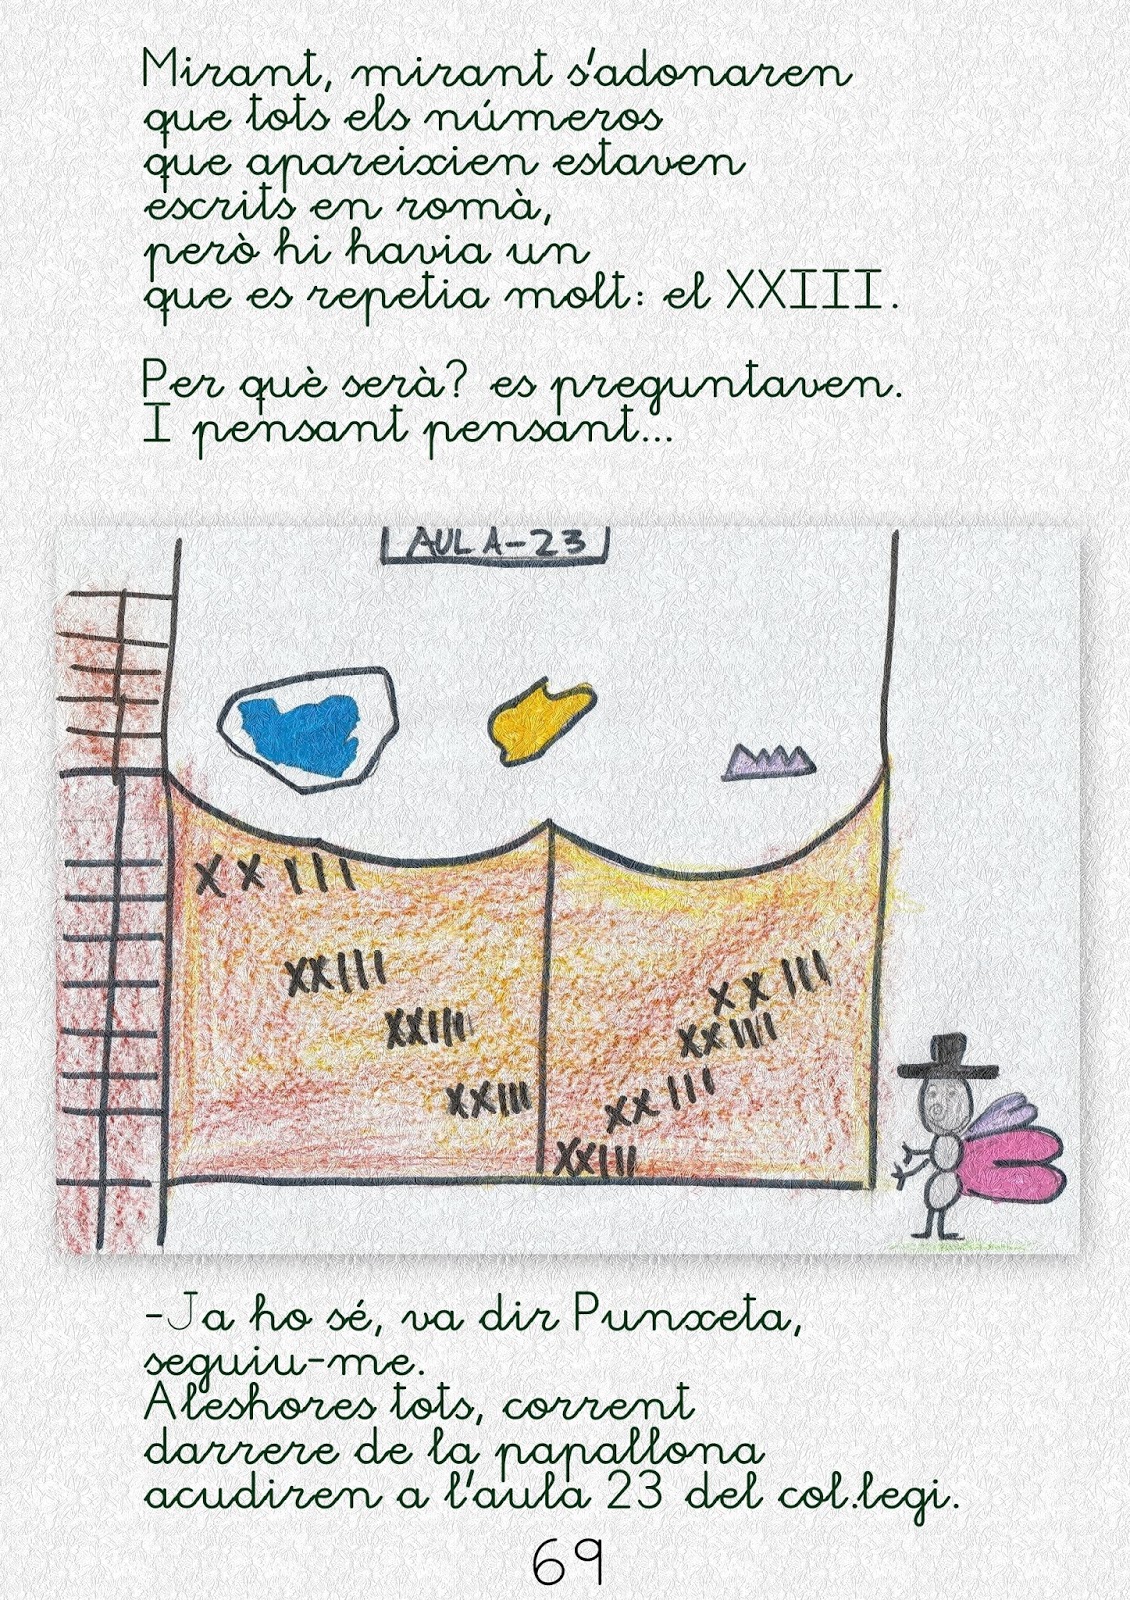 Mirant, mirant s'adonaren
que tots els números
que apareixien estaven
escrits en romà,
però hi havia un
que es repetia molt: el XXIII.
Per què serà? es preguntaven.
I pensant pensant...
AULA-23
XXIII
XXIII
XXIII
XXIII
XXIII
XXIII
XXIII
XXIII
-Ja ho sé, va dir Punxeta,
seguiu-me.
Aleshores tots, corrent
darrere de la papallona
acudiren a l'aula 23 del col.legi.
69